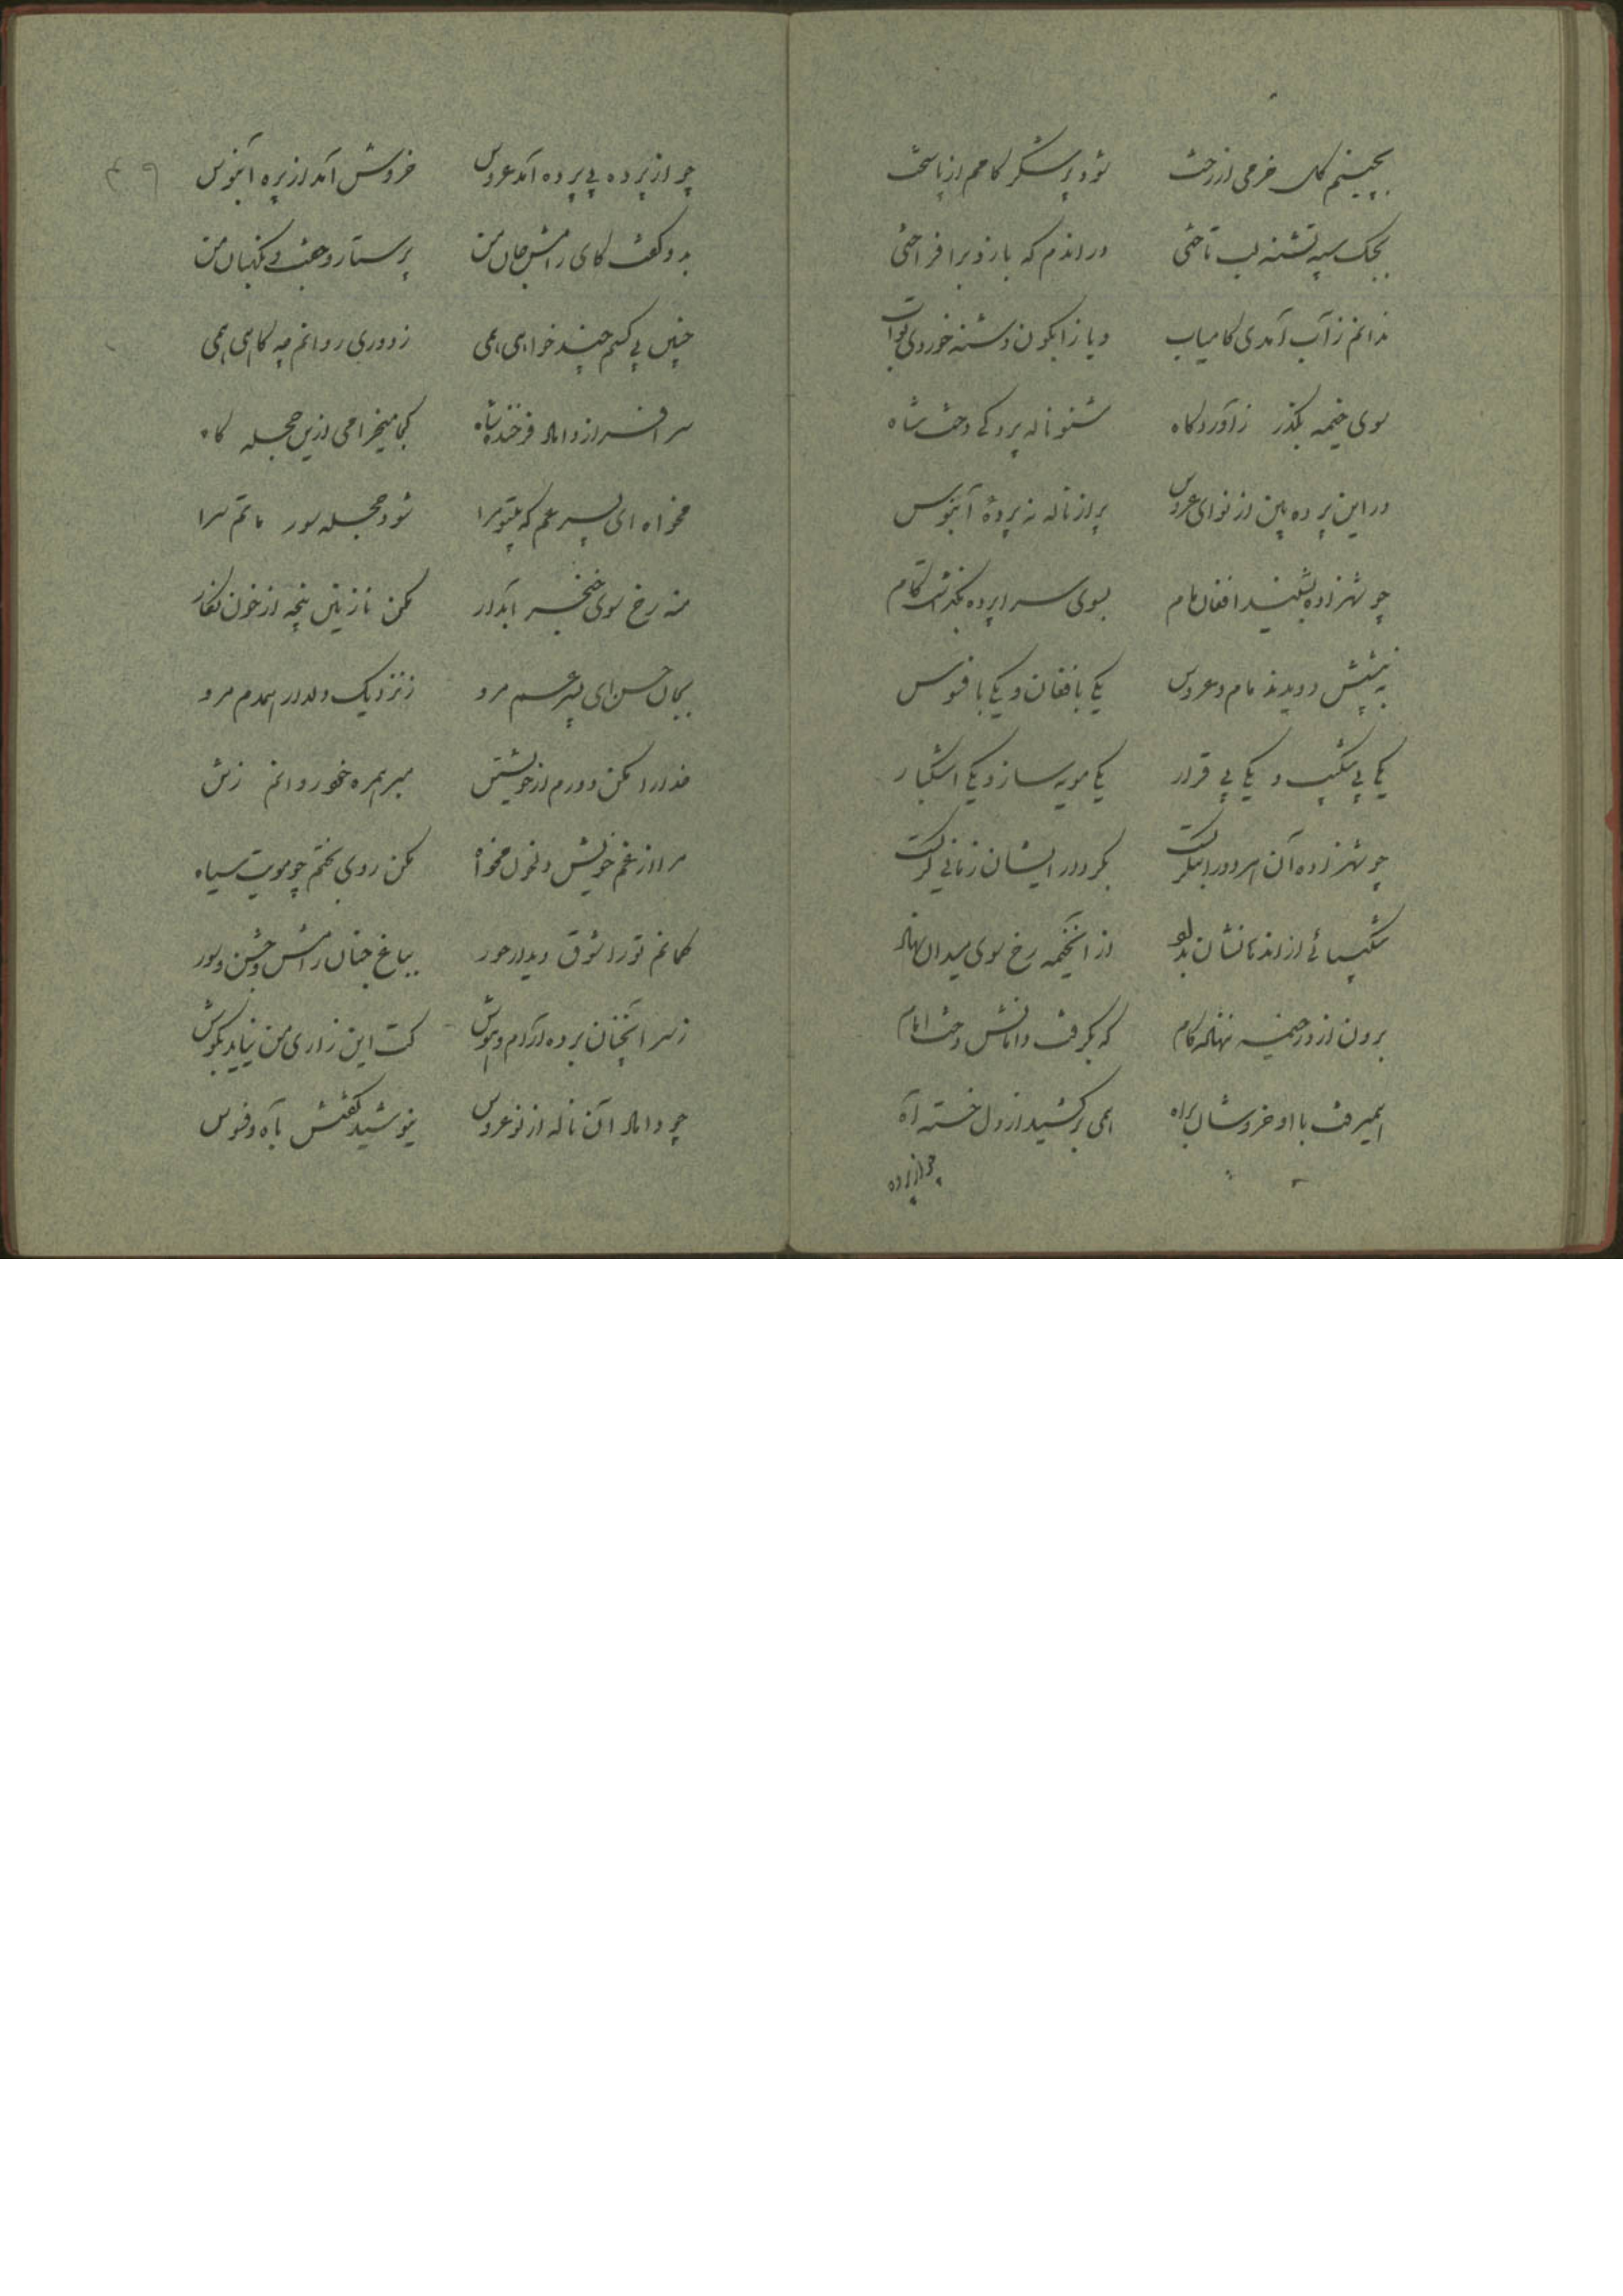 بچینم گل خرمی از رخت شود پرشکر کامم از پاسخت
بجنگ سپه تشنه لب تاختی در اندم که بازو برافراختی
ندانم ز آب آمدی کامیاب ویا زابگون دشنه خوردی تو آب
سوی خیمه بگذر ز آوردگاه شنو ناله پردگی دخت شاه
در این پرده بین از نوای عروس پر از ناله نه پردهٔ آبنوس
چو شهزاده بشنید افغان مام بسوی سراپرده بگذاشت گام
به پیشش دویدند مام و عروس یکی با فغان و یکی با فسوس
یکی بی شکیب و یکی بی قرار یکی مویه ساز و یکی اشکبار
چو شهزاده آن هر دو را بنگریست بکردار ایشان زمانی گریست
شکیبائی از اندهانشان بداد از آن خیمه رخ سوی میدان نهاد
برون از در خیمه ننهاده گام که بگرفت دامانش دخت امام
همیرفت با او خروشان براه همی برکشید از دل خسته آه
چو از پرده
چو از پرده بی پرده آمد عروس خروش آمد از پرده آبنوس
بدو گفت کای رامش جان من پرستار و جفت و نگهبان من
چنین بی کسم چند خواهی همی ز دوری روانم چه کاهی همی
سرافراز داماد فرخنده شاه کجا میخرامی ازین حجله گاه
مخواه ای پسر عم که بیتو مرا شود حجله سور ماتم سرا
منه رخ سوی خنجر آبدار مکن نازنین پنجه از خون نگار
بجان حسن ای پسر عم مرو ز نزدیک دلدار همدم مرو
خدا را مکن دورم از خویشتن مبر همره خود روانم ز تن
مرا از غم خویش دلخون مخواه مکن روی بختم چو مویت سیاه
گمانم تو را شوق دیدار حور بباغ جنان رامش و جشن و سور
ز سر آنچنان برده آرام و هوش کت این زاری من نیاید بگوش
چو داماد آن ناله از نو عروس نیوشید گفتش بآه و فسوس